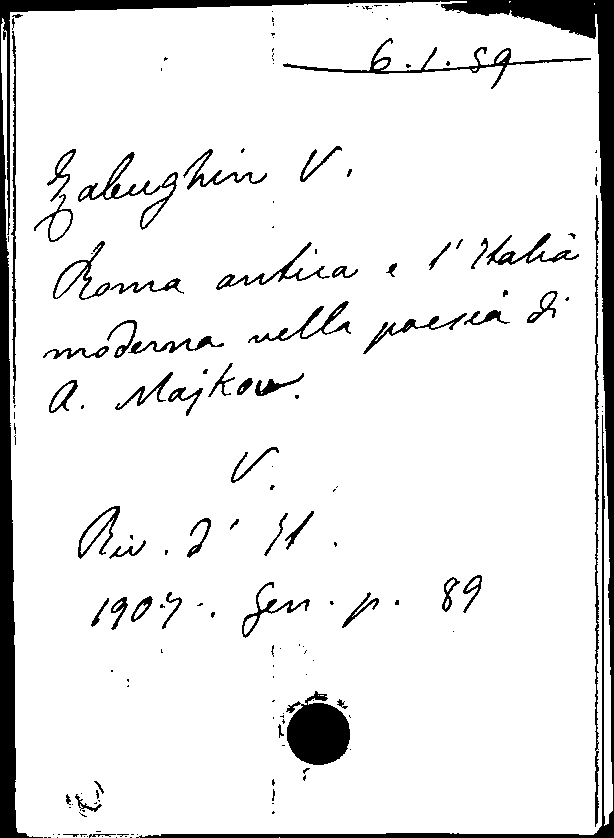 6.1.59
Zabughin V.
Roma antica e l'Italia
moderna nella poesia di
A. Majkow.
V.
Riv. d' It.
1907. Gen. p. 89